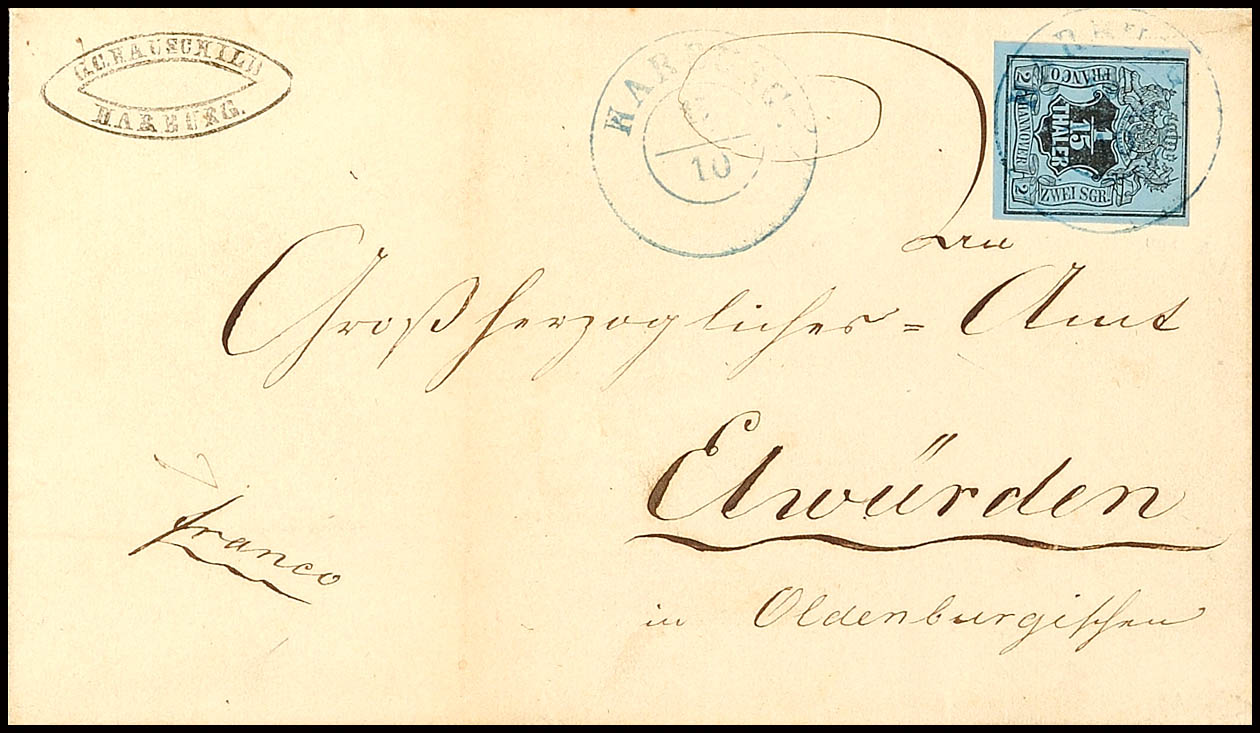 G.C. HAUSCHILD
HARBURG.
HARBURG
10
HARBURG
FRANCO
2 HANNOVER 2
1/15
THALER
ZWEI SGR.
Großherzogliches = Amt
Elwürden
franco
in Oldenburgischen